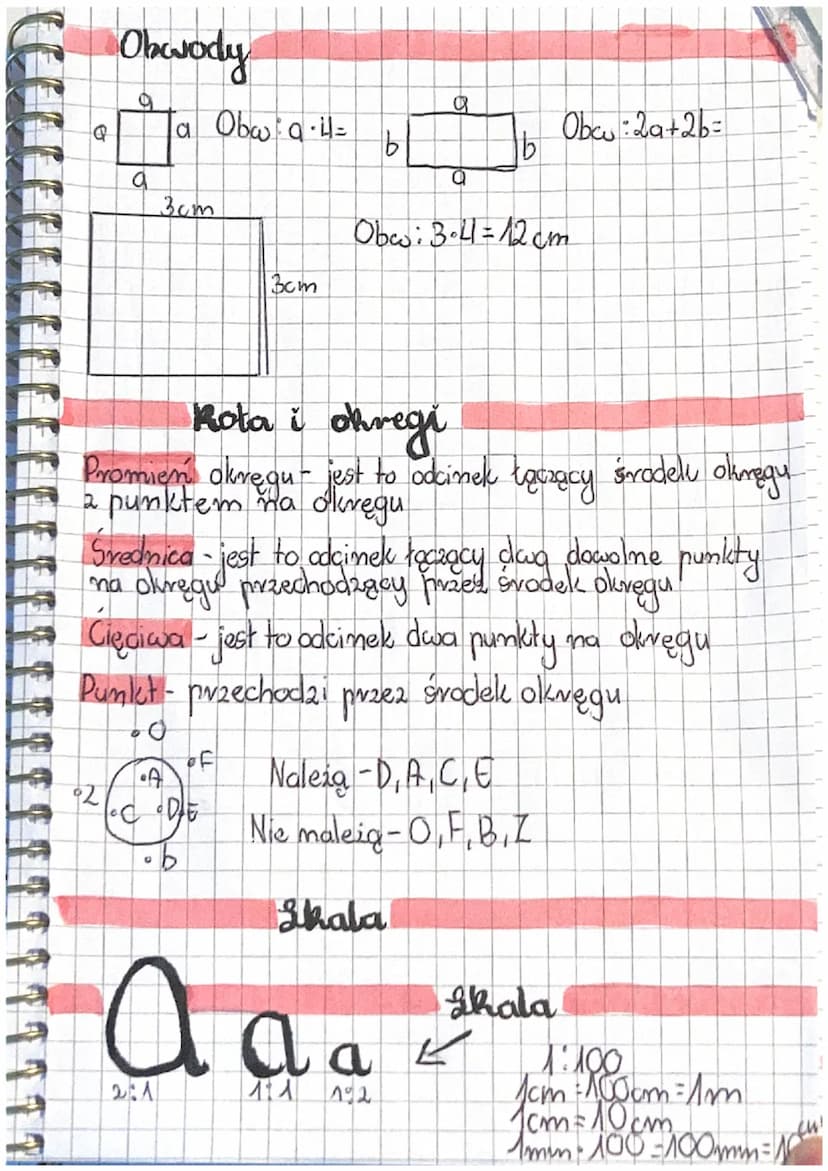 Obwody
a
a
a
Obw: a·4=
a
b
b
Obw: 2a+2b=
a
a
3cm
Obw: 3·4=12cm
3cm
Koła i okręgi
Promień okręgu - jest to odcinek łączący środek okręgu
z punktem na okręgu
Średnica - jest to odcinek łączący dwa dowolne punkty
na okręgu przechodzący przez środek okręgu
Cięciwa - jest to odcinek dwa punkty na okręgu
Punkt - przechodzi przez środek okręgu
O
F
A
Z
C
D
E
b
Należą - D, A, C, E
Nie należą - O, F, B, Z
Skala
Skala
a a a
2:1 1:1 1:2
1:100
1cm = 100cm = 1m
1cm = 10cm
1mm · 100 = 100mm = 10cm